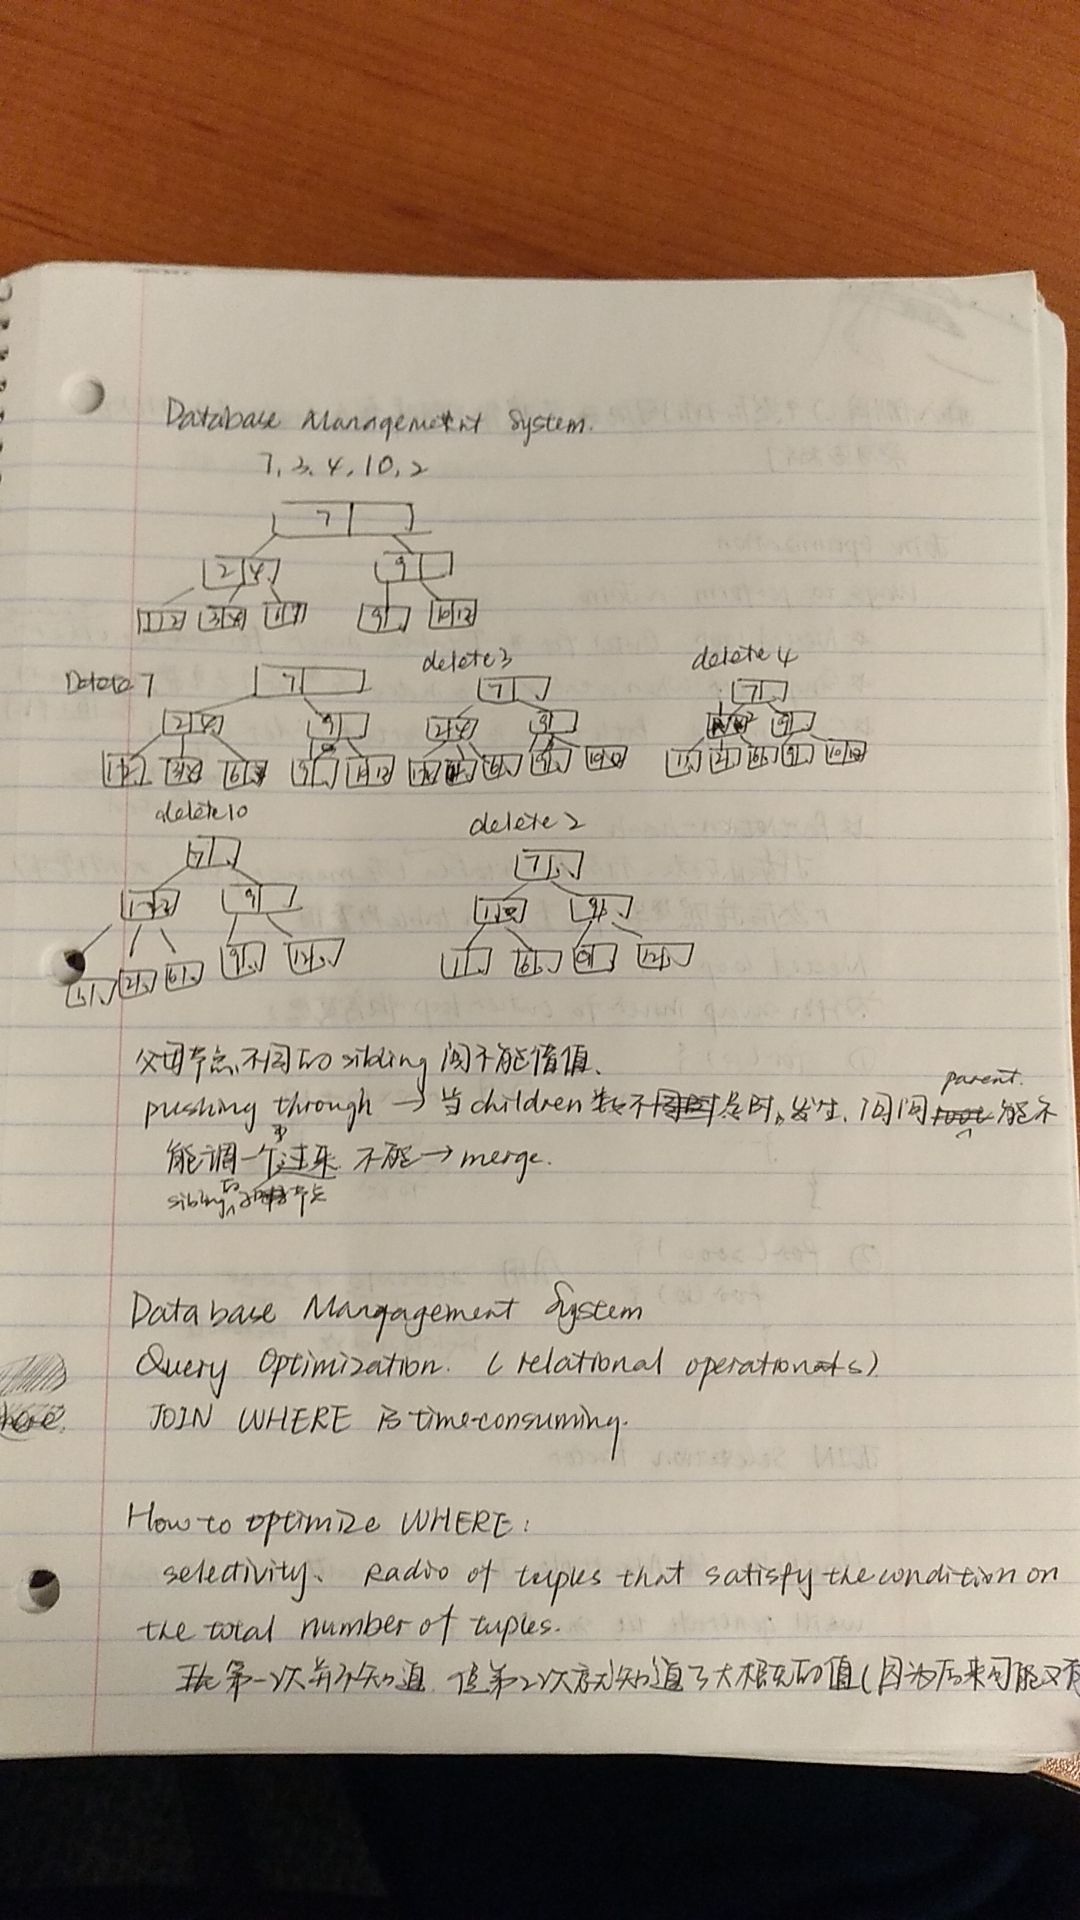 Database Management System.
7, 3, 4, 10, 2
7
2 4 9
1 2 3 4 6 7 9 10 12
Delete 7 delete 3 delete 4
7 7 7
2 4 9 2 4 9 2 9
1 2 3 4 6 9 10 12 6 9 10 12 1 2 6 9 10 12
delete 10 delete 2
7 7
1 2 9 1 9
1 2 6 9 12 1 6 9 12
父母节点不同的 sibling 间不能借值、
parent.
pushing through → 当 children 数不 时, 发生, 问问 能不
能调一个过来 不能 → merge.
sibling 的 节点
Database Mangagement System
Query Optimization. (relational operations)
JOIN WHERE is time-consuming.
How to optimize WHERE:
selectivity、 Radio of tuples that satisfy the condition on
the total number of tuples.
第一次并不知道, 但第2次就知道了大概的值(因为后来可能又有